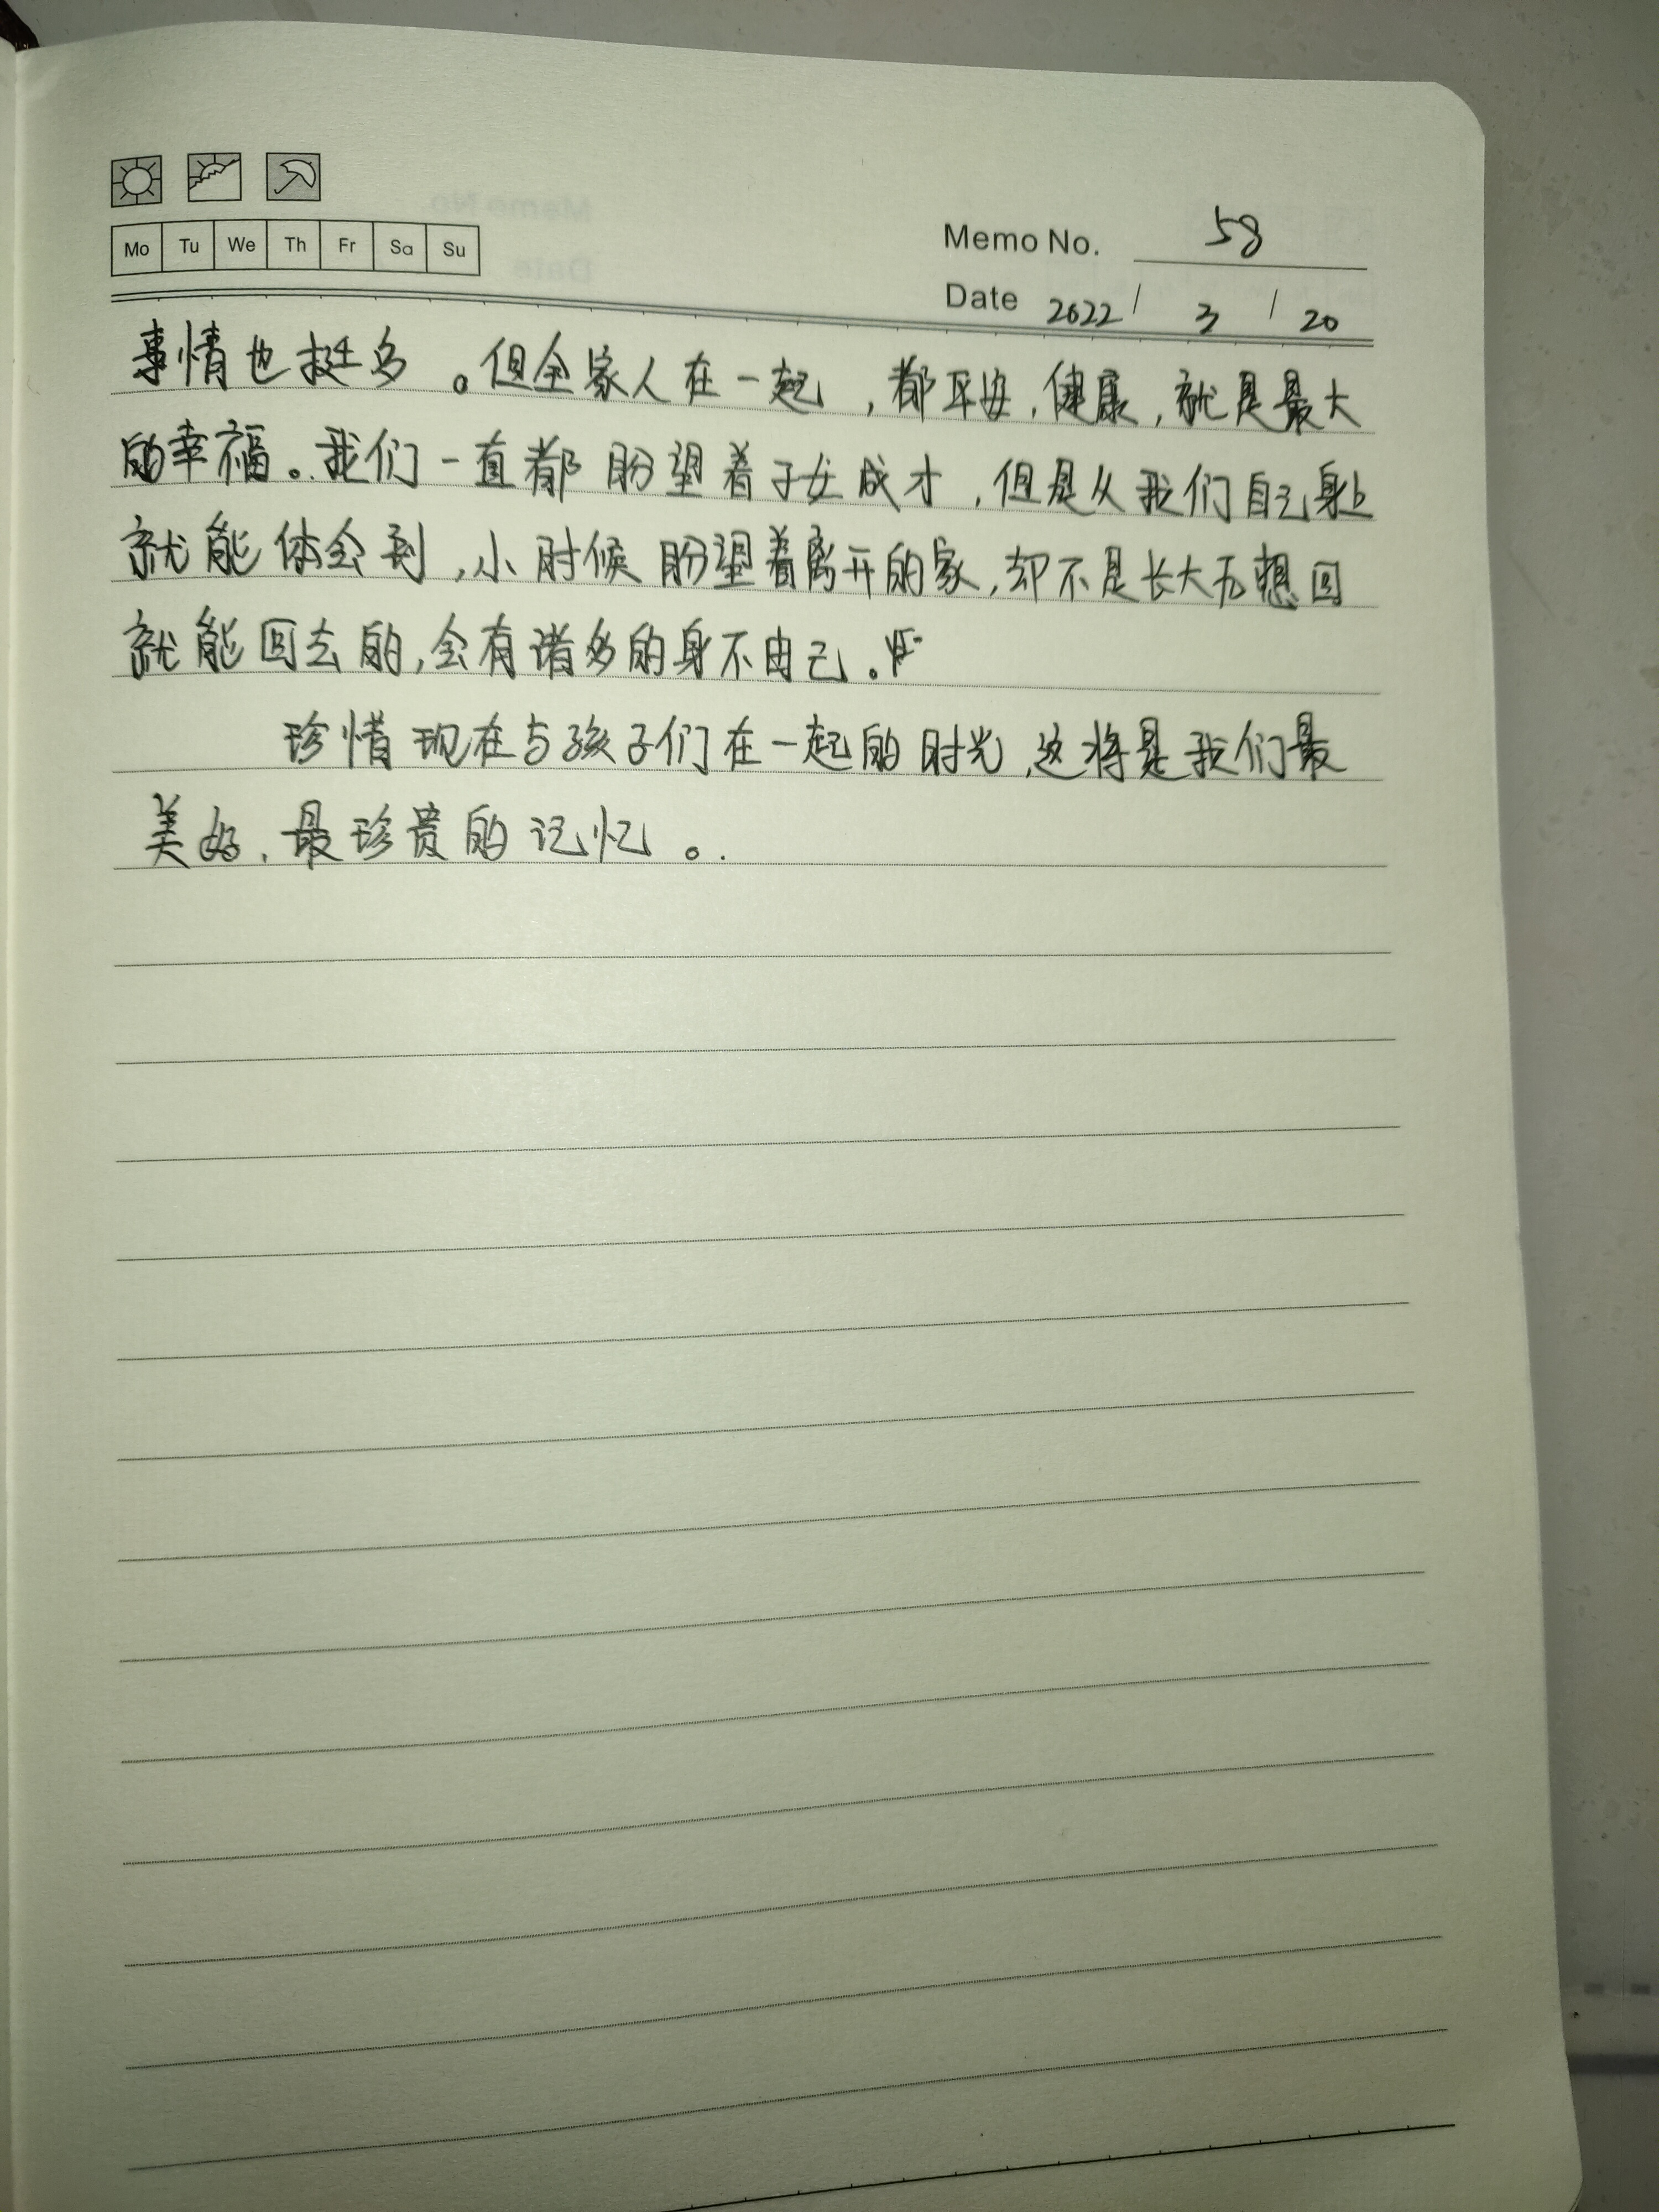 Mo Tu We Th Fr Sa Su
Memo No. 58
Date 2022 / 3 / 20
事情也挺多。但全家人在一起,都平安,健康,就是最大
的幸福。我们一直都盼望着子女成才,但是从我们自己身上
就能体会到,小时候盼望着离开的家,却不是长大后想回
就能回去的,会有诸多的身不由己。
珍惜现在与孩子们在一起的时光,这将是我们最
美好,最珍贵的记忆。.